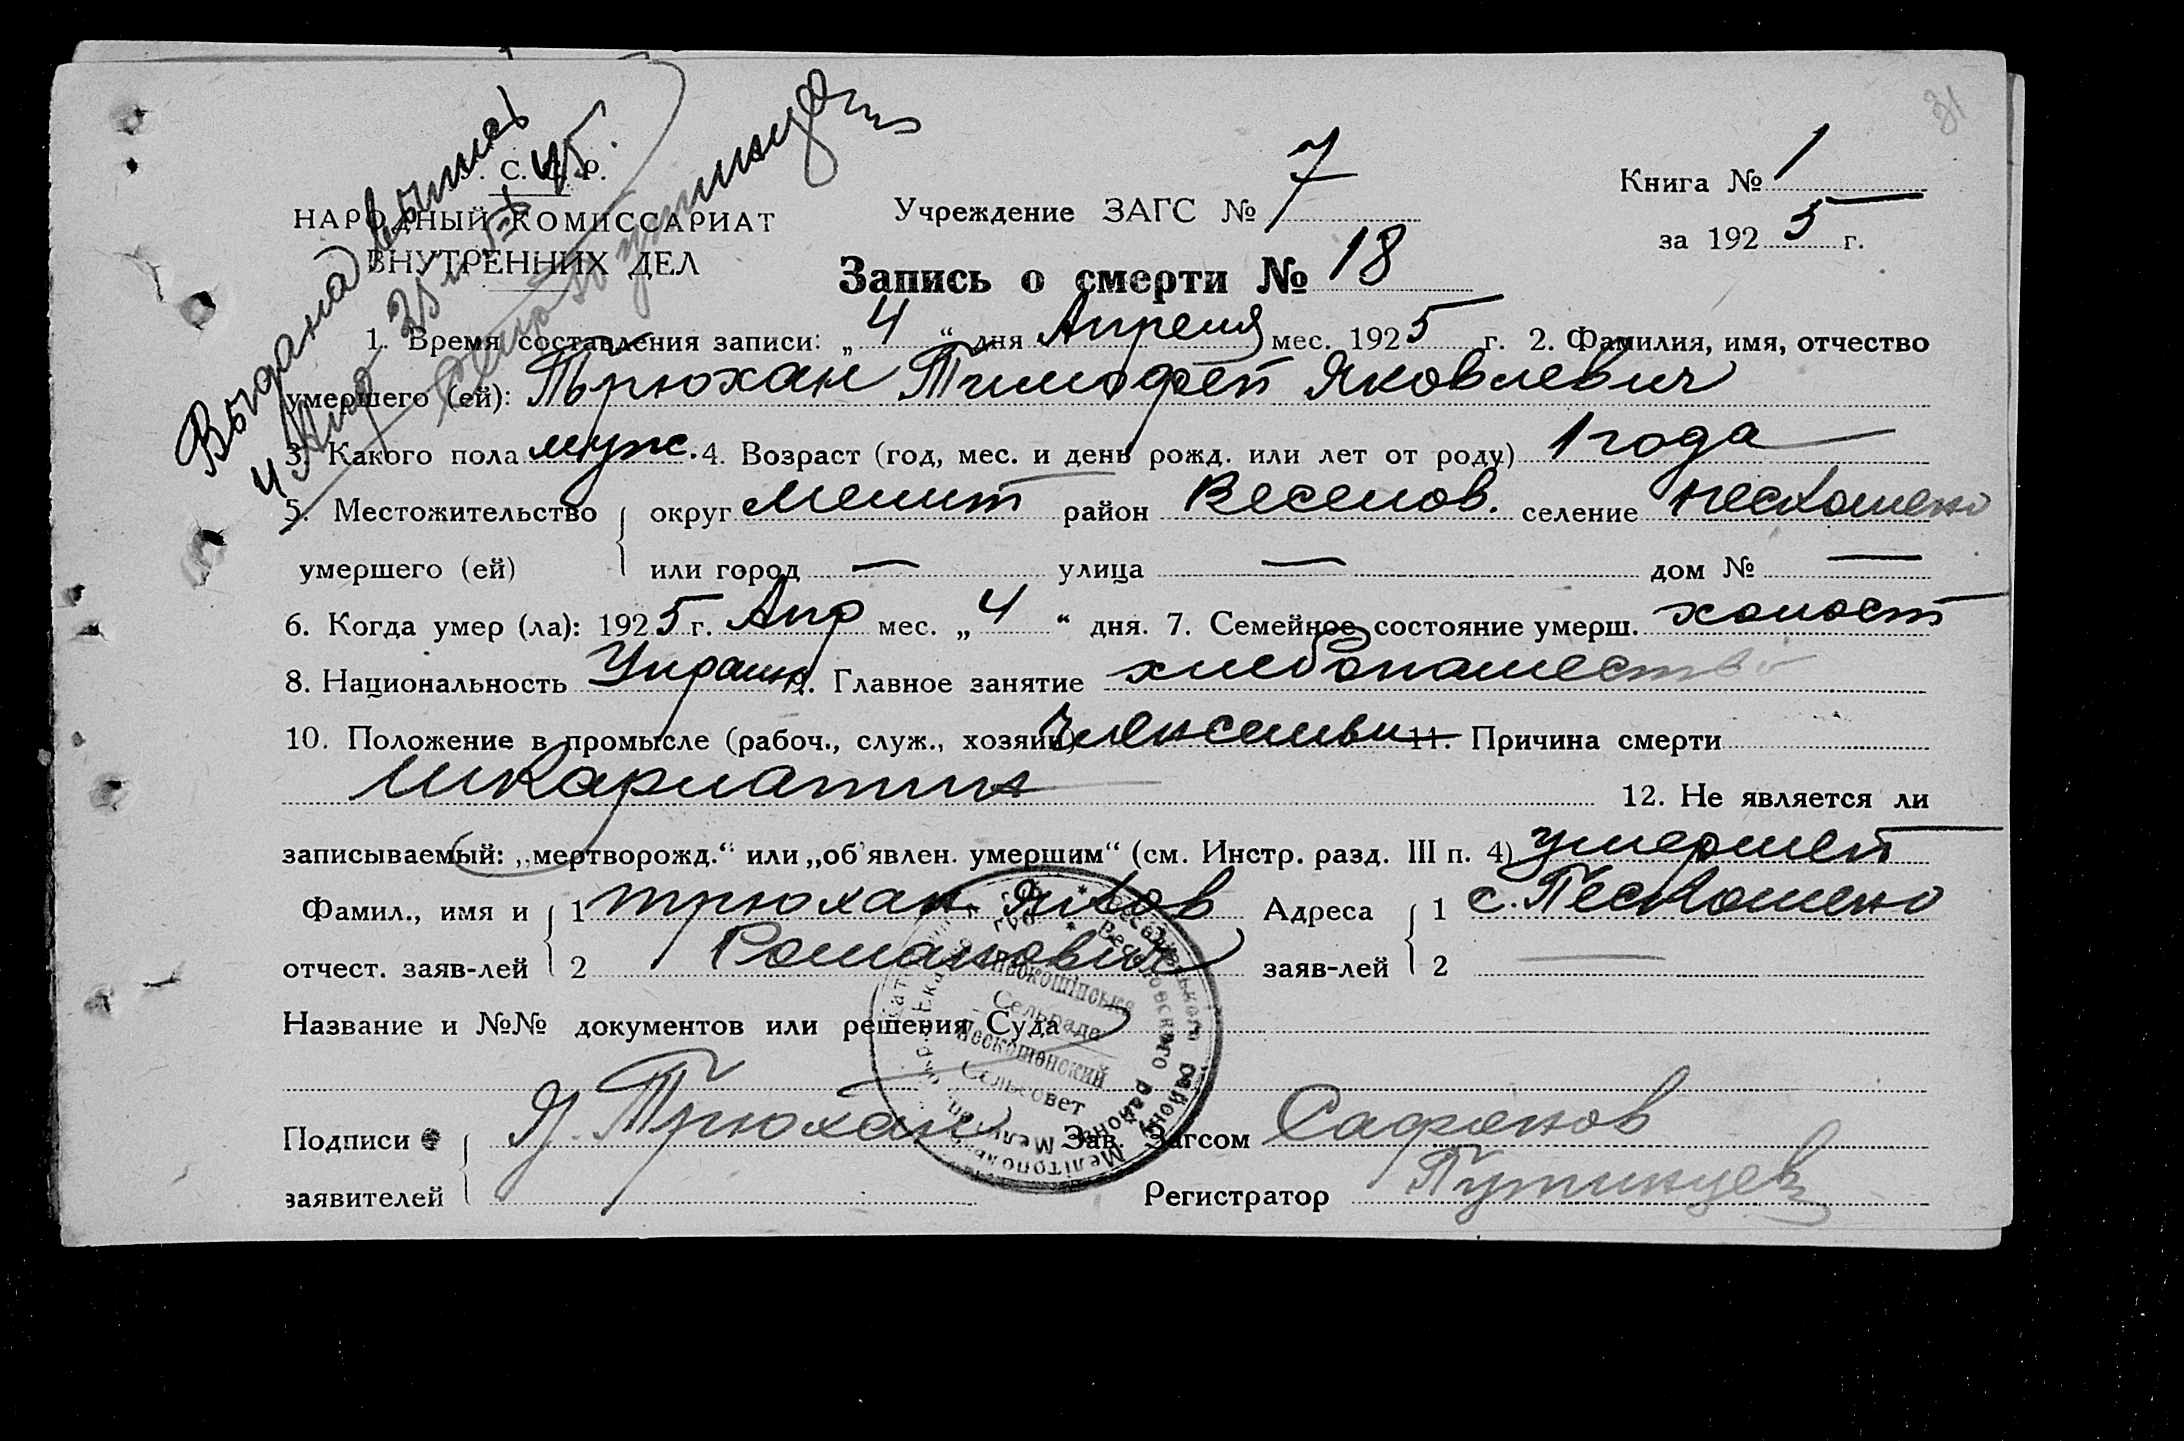 31
С. С. Р.
НАРОДНЫЙ КОМИССАРИАТ
ВНУТРЕННИХ ДЕЛ
Выдана выпись
4 Апр 25
Учреждение ЗАГС № 7
Книга № 1
за 1925 г.
Запись о смерти № 18
1. Время составления записи: „4“ дня Апреля мес. 1925 г. 2. Фамилия, имя, отчество
умершего (ей): Трюхан Тимофей Яковлевич
3. Какого пола муж. 4. Возраст (год, мес. и день рожд. или лет от роду) 1 года
5. Местожительство округ Мелит район Веселов. селение Пескошено
умершего (ей) или город — улица — дом № —
6. Когда умер (ла): 1925 г. Апр мес. „4“ дня. 7. Семейное состояние умерш. холост
8. Национальность Украин 9. Главное занятие хлебопашество
10. Положение в промысле (рабоч., служ., хозяин) член семьи 11. Причина смерти
шкарлатина 12. Не является ли
записываемый: „мертворожд.“ или „об'явлен. умершим“ (см. Инстр. разд. III п. 4) умершей
Фамил., имя и 1 Трюхан Яков Адреса 1 с. Пескошено
отчест. заяв-лей 2 Романович заяв-лей 2 —
Название и №№ документов или решения Суда
Сельрада
Пескошенский
Сельсовет
Подписи Я. Трюхан Зав. Загсом Сафонов
заявителей Регистратор Путинцев